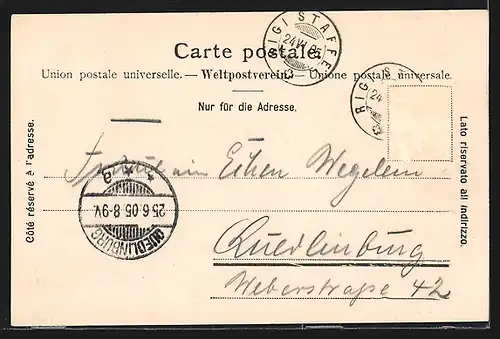 RIGI STAFFEL
24.VI.05
Carte postale.
Union postale universelle. — Weltpostverein. — Unione postale universale.
Nur für die Adresse.
RIGI ST
24
Côté réservé à l'adresse.
Lato riservato all indirizzo.
Fräulein Wegelein
QUEDLINBURG
25.6.05.8-9V.
* g
Quedlinburg
Weberstraße 42